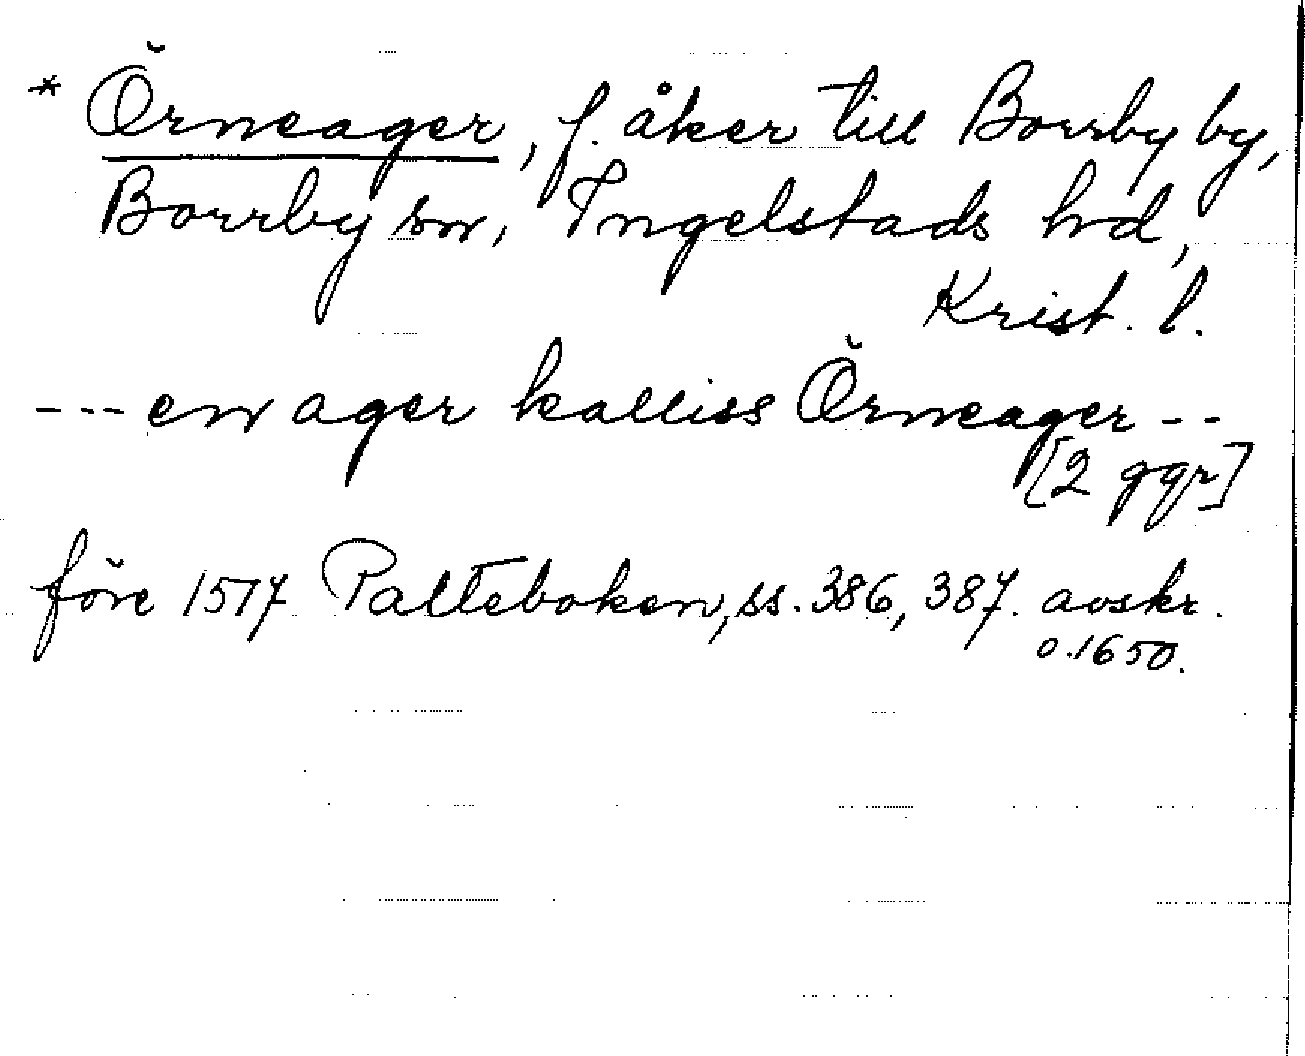 * Örneager, f. åker till Borrby by,
Borrby sn, Ingelstads hd,
Krist. l.
--- en ager kalliss Örneager --
[2 ggr]
före 1517 Palteboken, ss. 386, 387. avskr.
o. 1650.